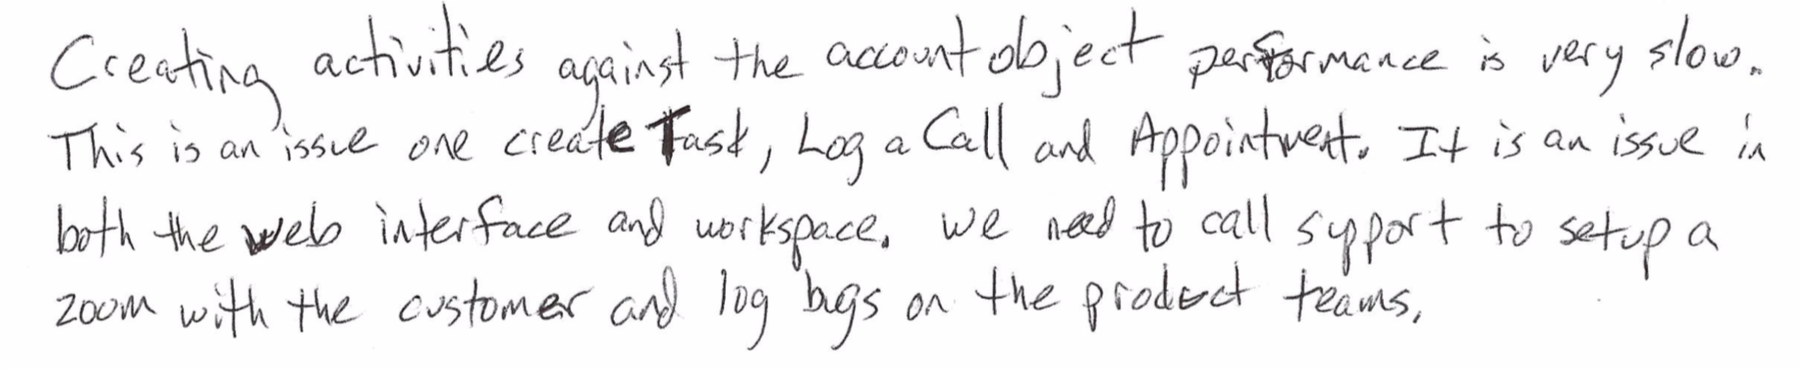 Creating activities against the account object performance is very slow.
This is an issue one create Task, Log a Call and Appointment. It is an issue in
both the web interface and workspace. we need to call support to setup a
zoom with the customer and log bugs on the product teams.